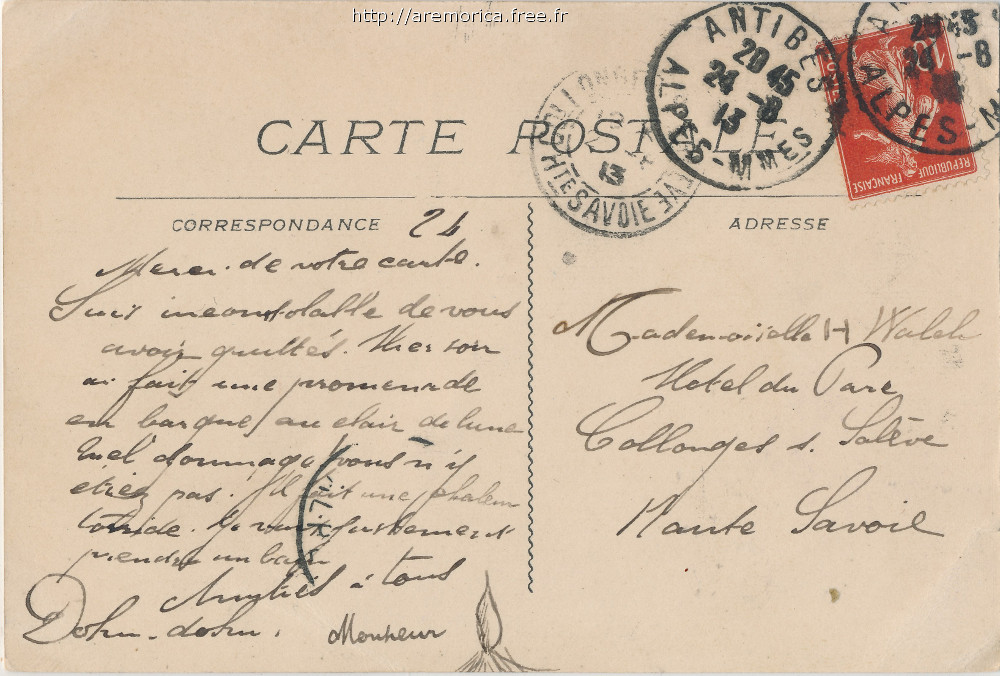 http://aremorica.free.fr
ANTIBES
20 45
24 -8
13
ALPES-MMES
20 45
24 -8
ALPES-M
COLLONGES
13
HTE SAVOIE
10
POSTES
REPUBLIQUE FRANÇAISE
CARTE POSTALE
CORRESPONDANCE
24
Merci de votre carte.
Suis inconsolable de vous
avoir quittés. Hier soir
ai fait une promenade
en barque au clair de lune
quel dommage vous n'y
étiez pas. Il fait une chaleur
torride. Je vais justement
prendre un bain
Amitiés à tous
Dohn-dohn.
Monsieur
ADRESSE
Mademoiselle H Walch
Hotel du Parc
Collonges s. Salève
Haute Savoie